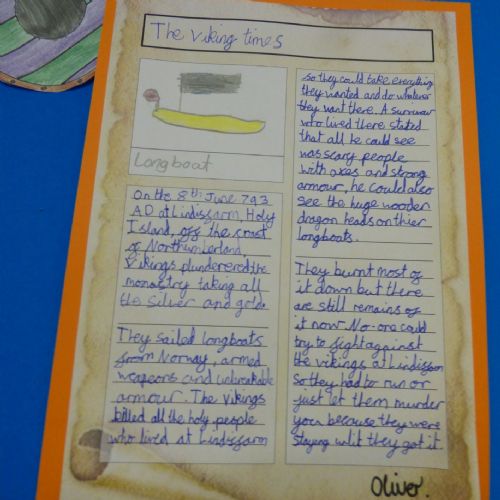 The viking times
Longboat
On the 8th June 793
AD at Lindisfarm, Holy
Island, off the coast
of Northumberland,
Vikings plunderered the
monastry taking all
the silver and gold.
They sailed longboats
from Norway, armed
weapons and unbreakable
armour. The vikings
killed all the holy people
who lived at Lindisfarm
so they could take everything
they wanted and do whatever
they want there. A survivour
who lived there stated
that all he could see
was scary people
with axes and strong
armour, he could also
see the huge wooden
dragon heads on thier
longboats.
They burnt most of
it down but there
are still remains of
it now. No-one could
try to fight against
the vikings at Lindisfarm
So they had to run or
just let them murder
you because they were
staying until they got it
Oliver